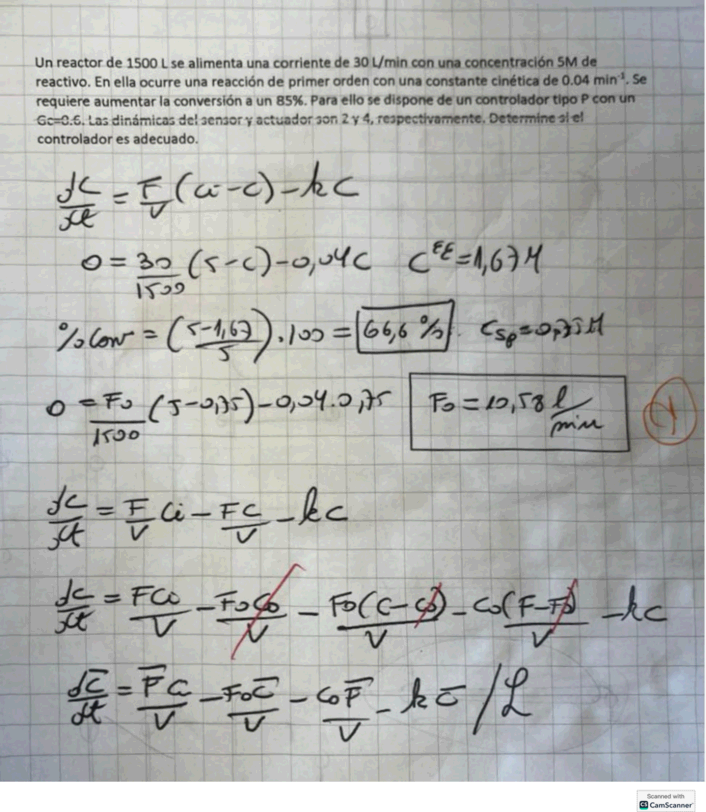 Un reactor de 1500 L se alimenta una corriente de 30 L/min con una concentración 5M de
reactivo. En ella ocurre una reacción de primer orden con una constante cinética de 0.04 min⁻¹. Se
requiere aumentar la conversión a un 85%. Para ello se dispone de un controlador tipo P con un
Gc=0.6. Las dinámicas del sensor y actuador son 2 y 4, respectivamente. Determine si el
controlador es adecuado.
dC/dt = F/V (Ci-C) - kC
0 = 30/1500 (5-C) - 0,04C C^EE = 1,67M
% Conv = ((5-1,67)/5).100 = 66,6 % Csp = 0,75M
0 = Fo/1500 (5-0,75) - 0,04.0,75 Fo = 10,58 l/min
dC/dt = F/V Ci - FC/V - kC
dC/dt = FCi/V - FoCo/V - Fo(C-Co)/V - Co(F-Fo)/V - kC
dC̅/dt = F̅Ci/V - FoC̅/V - CoF̅/V - kC̅ /ℒ
Scanned with
CS CamScanner